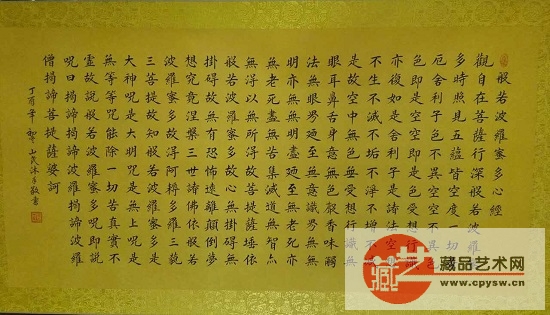 般若波羅蜜多心經
觀自在菩薩行深般若波羅
多時照見五蘊皆空度一切
厄舍利子色不異空空不異色
色即是空空即是色受想行
亦復如是舍利子是諸法空
不生不滅不垢不淨不增不
是故空中無色無受想行識無
眼耳鼻舌身意無色聲香味觸
法無眼界乃至無意識界無無
明亦無無明盡乃至無老死亦
無老死盡無苦集滅道無智亦
無得以無所得故菩提薩埵依
般若波羅蜜多故心無掛礙無
掛礙故無有恐怖遠離顛倒夢
想究竟涅槃三世諸佛依般若
波羅蜜多故得阿耨多羅三藐
三菩提故知般若波羅蜜多是
大神呪是大明呪是無上呪是
無等等呪能除一切苦真實不
虛故說般若波羅蜜多呪即說
呪曰揭諦揭諦波羅揭諦波羅
僧揭諦菩提薩婆訶
丁酉年 山民沐手敬書
藏艺
藏品艺术网
www.cpysw.cn